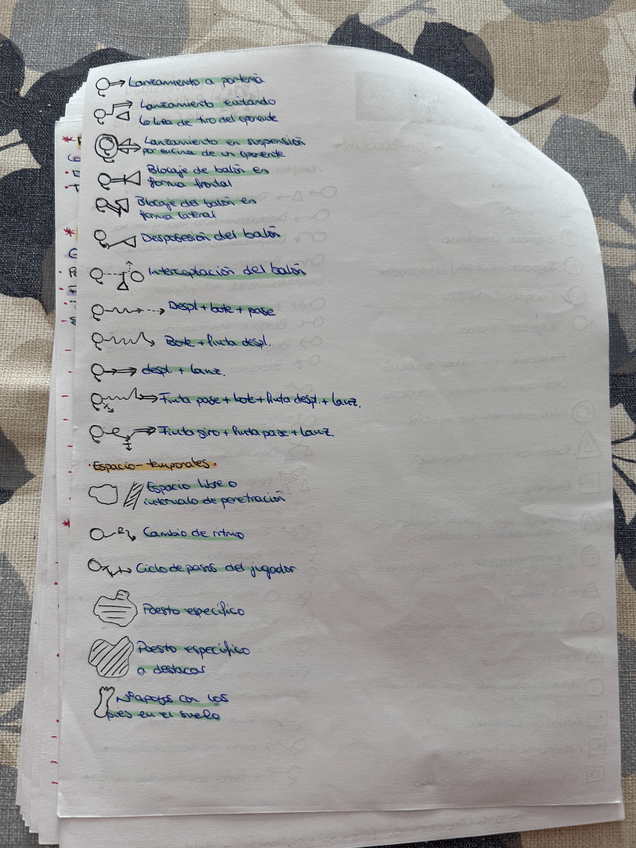 Lanzamiento a portería
Lanzamiento evitando
la línea de tiro del oponente
Lanzamiento en suspensión
por encima de un oponente
Blocaje de balón en
forma frontal
Blocaje del balón en
forma lateral
Desposesión del balón
Interceptación del balón
Despl + bote + pase
Bote + finta despl.
despl + lanz.
Finta pase + bote + finta despl. + lanz.
Finta giro + finta pase + lanz.
Espacio-temporales.
Espacio libre o
intervalo de penetración
Cambio de ritmo
Ciclo de pasos del jugador
Puesto específico
Puesto específico
a destacar
Nº apoyos con los
pies en el suelo